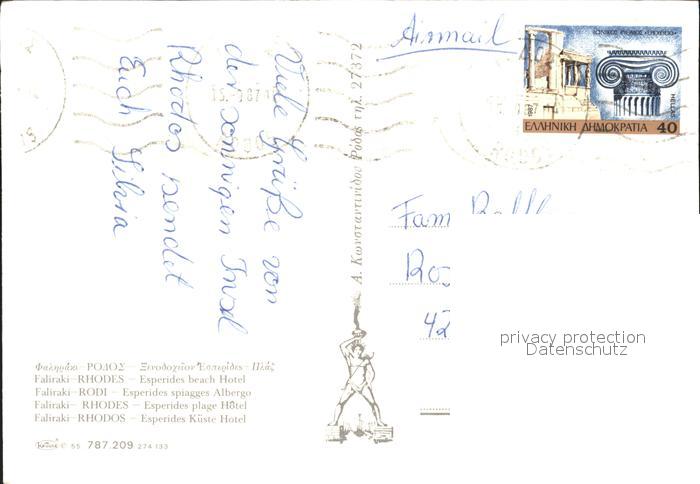 Airmail
ΙΩΝΙΚΟΣ ΡΥΘΜΟΣ «ΕΡΕΧΘΕΙΟ»
HELLAS
ΕΛΛΗΝΙΚΗ ΔΗΜΟΚΡΑΤΙΑ 40
Viele Grüße von
der sonnigen Insel
Rhodos sendet
Euch Silvia
Α. Κωνσταντινίδου Ρόδος τηλ. 27372
Fam
Ros
42
privacy protection
Datenschutz
Φαληράκι - ΡΟΔΟΣ - Ξενοδοχεῖον Ἑσπερίδες - Πλάζ
Faliraki-RHODES - Esperides beach Hotel
Faliraki-RODI - Esperides spiagges Albergo
Faliraki- RHODES - Esperides plage Hôtel
Faliraki-RHODOS - Esperides Küste Hotel
© 55 787.209 274 133